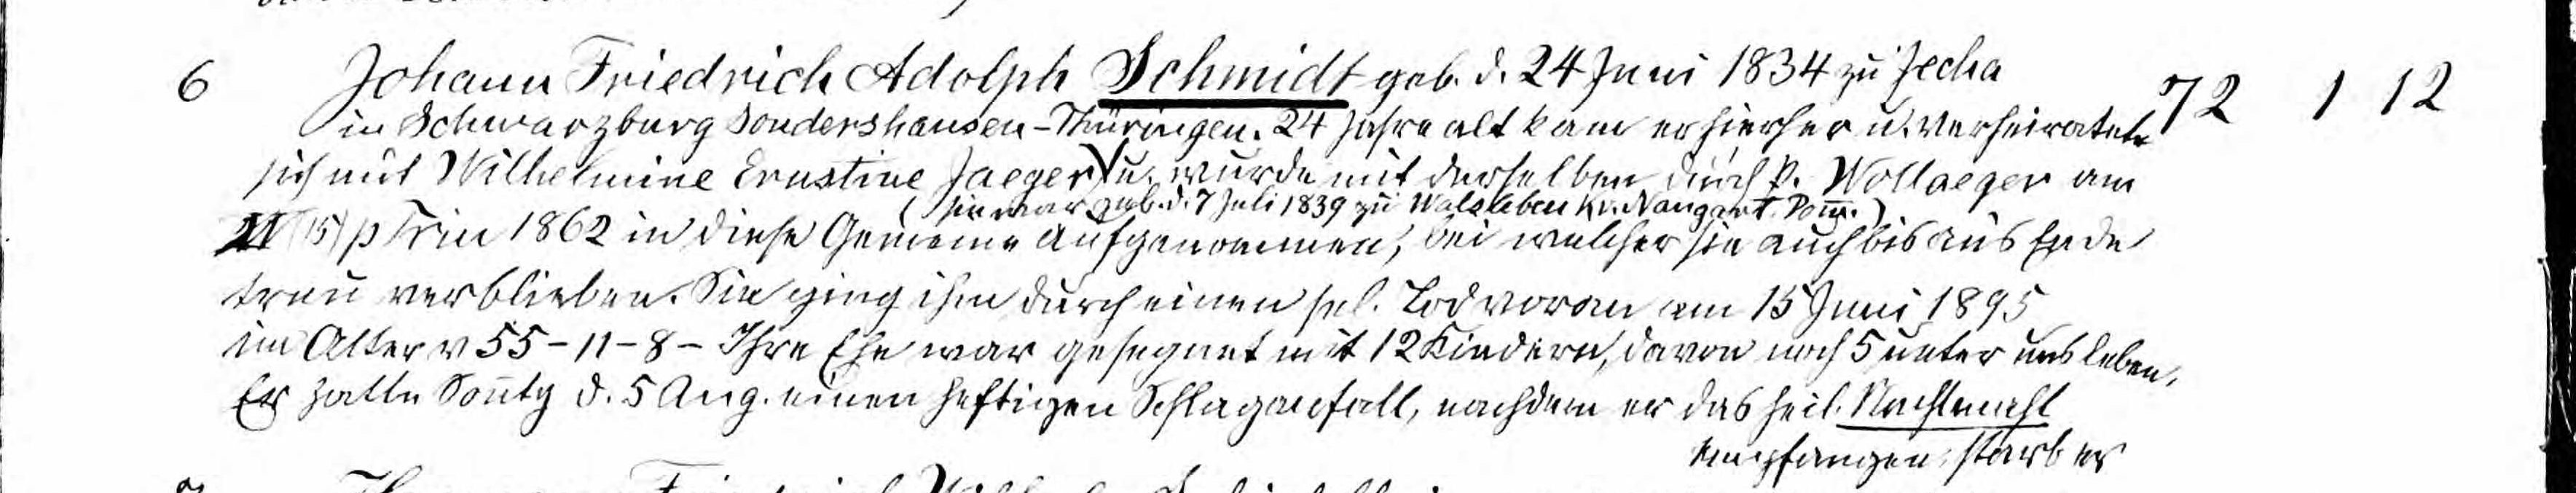 6 Johann Friedrich Adolph Schmidt geb. d. 24 Juni 1834 zu Jecha 72 1 12
in Schwarzburg Sondershausen-Thüringen. 24 Jahre alt kam er hierher u. verheiratete
sich mit Wilhelmine Ernstine Jaeger) u. wurde mit derselben durch P. Wollaeger am
(sie war geb. d. 7 Juli 1839 zu Walsleben Kr. Naugart. Pom̅.)
(15) p Trin 1862 in diese Gemeine aufgenommen, bei welcher sie auch bis ans Ende
treu verblieben. Sie ging ihm durch einen sel. Tod voran am 15 Juni 1895
im Alter v 55-11-8- Ihre Ehe war gesegnet mit 12 Kindern, davon noch 5 unter uns leben.
Er hatte Son̅tg d. 5 Aug. einen heftigen Schlaganfall, nachdem er das heil. Nachtmahl
empfangen, starb er